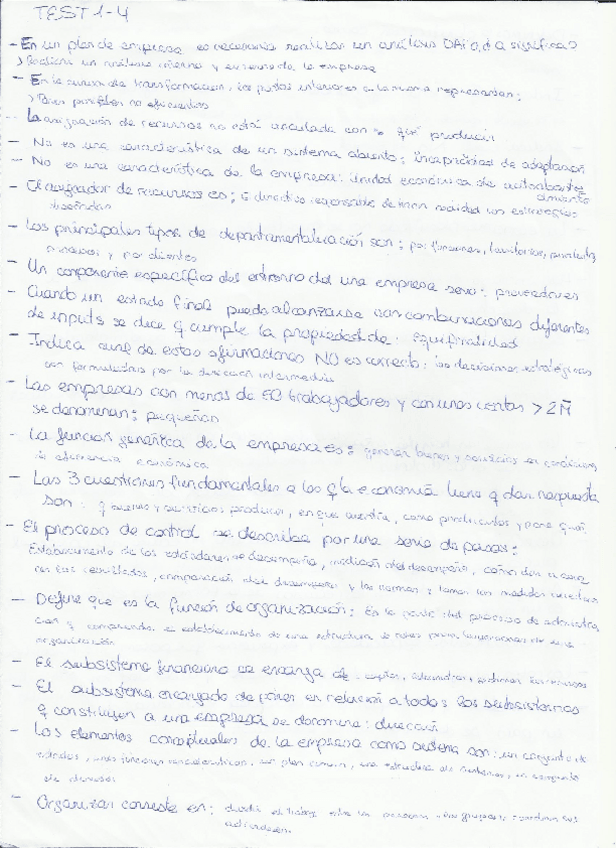 TEST 1-4
- En un plan de empresa es necesario realizar un análisis DAFO, q significa?
Realizar un análisis interno y externo de la empresa
- En la curva de transformación, los puntos interiores a la misma representan:
no eficientes
- La asignación de recursos no está vinculada con: qué producir
- No es una característica de un sistema abierto: incapacidad de adaptación
- No es una característica de la empresa: Unidad económica de autoabastecimiento
- El asignador de recursos es: directivo responsable de hacer realidad las estrategias
diseñadas
- Los principales tipos de departamentalización son: por funciones, territorios, productos,
procesos y por clientes
- Un componente específico del entorno de una empresa sería: proveedores
- Cuando un estado final puede alcanzarse con combinaciones diferentes
de inputs se dice q cumple la propiedad de: Equifinalidad
- Indica cual de estas afirmaciones NO es correcta: las decisiones estratégicas
son formuladas por la dirección intermedia
- Las empresas con menos de 50 trabajadores y con unas ventas > 2M
se denominan: pequeñas
- La función genérica de la empresa es: generar bienes y servicios en condiciones
de eficiencia económica
- Las 3 cuestiones fundamentales a las q la economía tiene q dar respuesta
son: q bienes y servicios producir, en que cuantía, como producirlos y para quien
- El proceso de control se describe por una serie de pasos:
Establecimiento de los estándares de desempeño, medición del desempeño,
los resultados, comparación del desempeño y las normas y tomar las medidas correctoras
- Define que es la función de organización: Es la parte del proceso de administra-
ción q comprende el establecimiento de una estructura de
organización
- El subsistema financiero se encarga de: captar, administrar, los recursos
- El subsistema encargado de poner en relación a todos los subsistemas
q constituyen a una empresa se denomina: dirección
- Los elementos conceptuales de la empresa como sistema son: un conjunto de
unas funciones características, un plan común, una estructura de un conjunto
de
- Organizar consiste en: dividir el trabajo entre las personas y los grupos y coordinar sus
actividades.